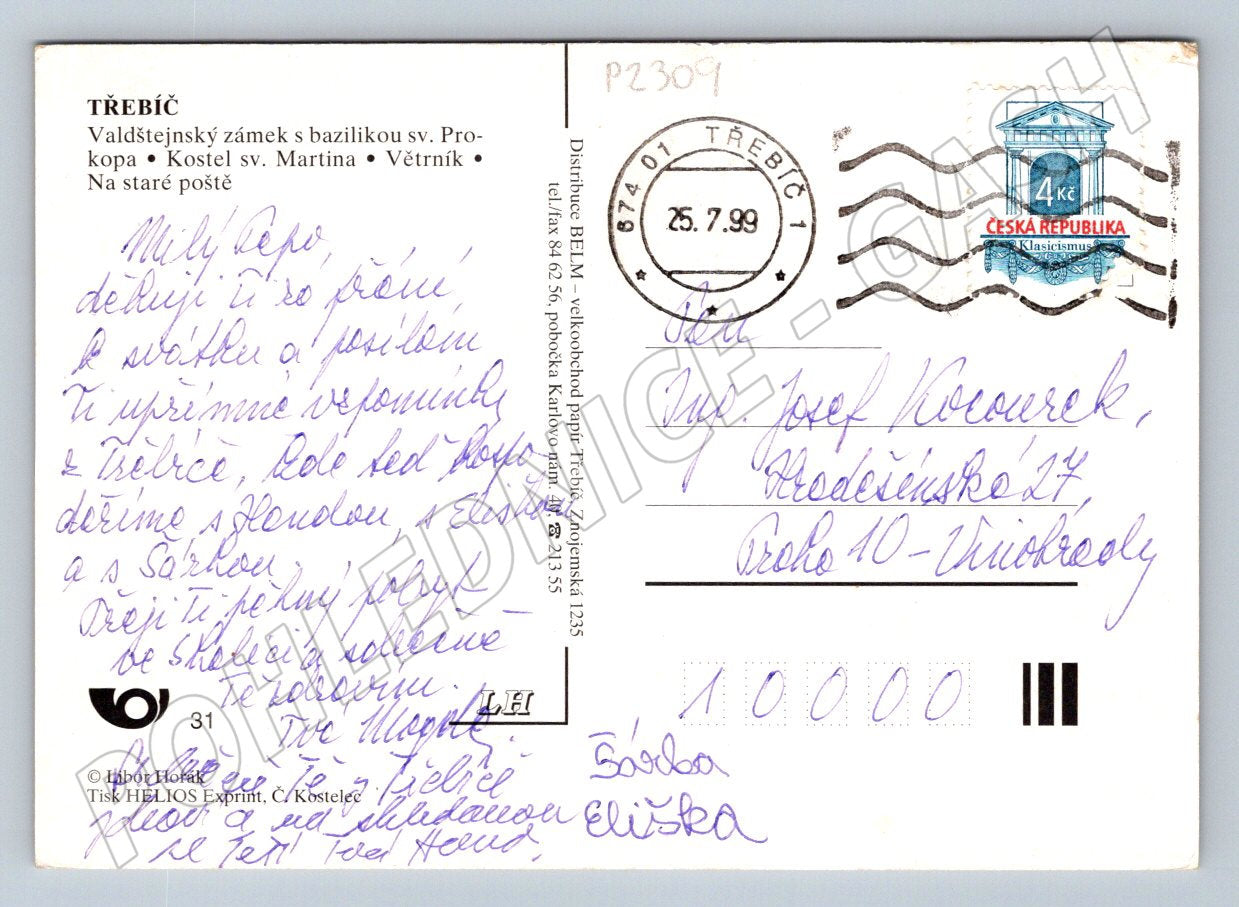 TŘEBÍČ
Valdštejnský zámek s bazilikou sv. Pro-
kopa • Kostel sv. Martina • Větrník •
Na staré poště
Milý Pepo,
děkuji Ti za přání
k svátku a posílám
Ti upřímné vzpomínky
z Třebíče, kde teď hospo-
daříme s Handou, s Eliškou
a s Šárkou.
Přeji Ti pěkný pobyt
ve Skalici a srdečně
Tě zdravím.
Tvá Magda.
31
© Libor Horák
Tisk HELIOS Exprint, Č. Kostelec
Tě z Třebíče
zdraví a na shledanou
se těší Tvá Hana.
Šárka
Eliška
LH
Distribuce BELM – velkoobchod papír Třebíč, Znojemská 1235
tel./fax 84 62 56, pobočka Karlovo nám. 40, ☎ 213 55
P2309
674 01 TŘEBÍČ 1
25.7.99
4 Kč
ČESKÁ REPUBLIKA
Klasicismus
Pan
Ing. Josef Kocourek,
Hradešínská 27,
Praha 10 – Vinohrady
10000
POHLEDNICE - GASH